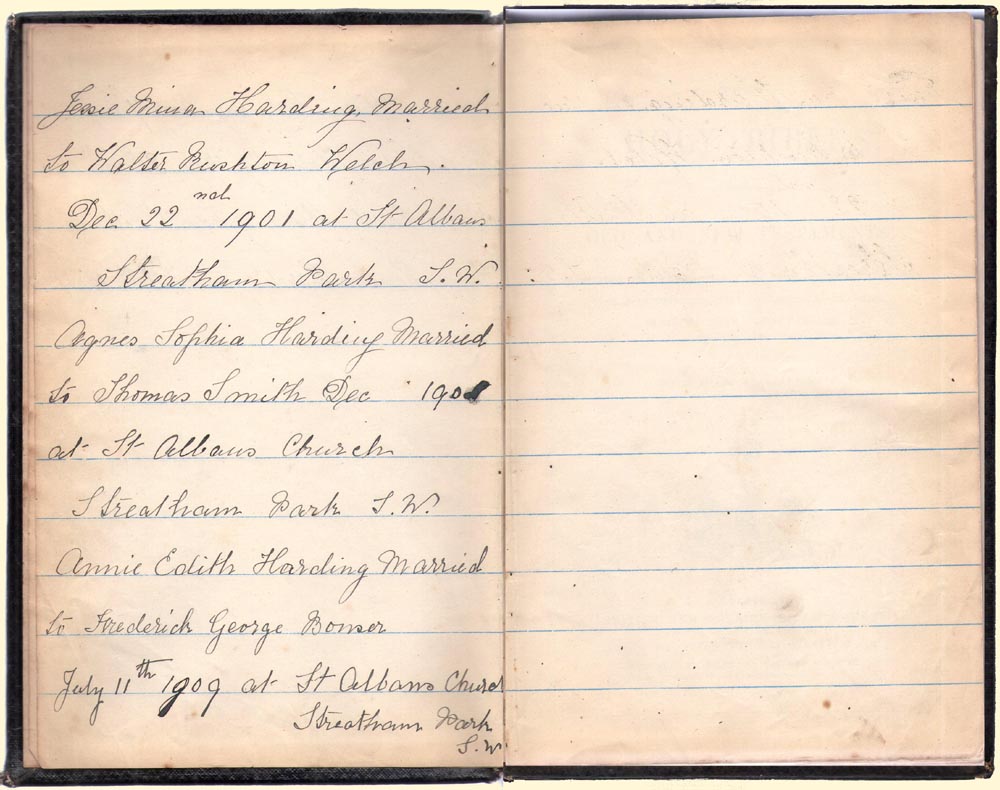 Jessie Mina Harding, Married
to Walter Rushton Welch.
Dec 22nd 1901 at St Albans
Streatham Park S.W.
Agnes Sophia Harding Married
to Thomas Smith Dec 190
at St Albans Church
Streatham Park S.W.
Annie Edith Harding Married
to Frederick George Bonser
July 11th 1909 at St Albans Church
Streatham Park
S.W